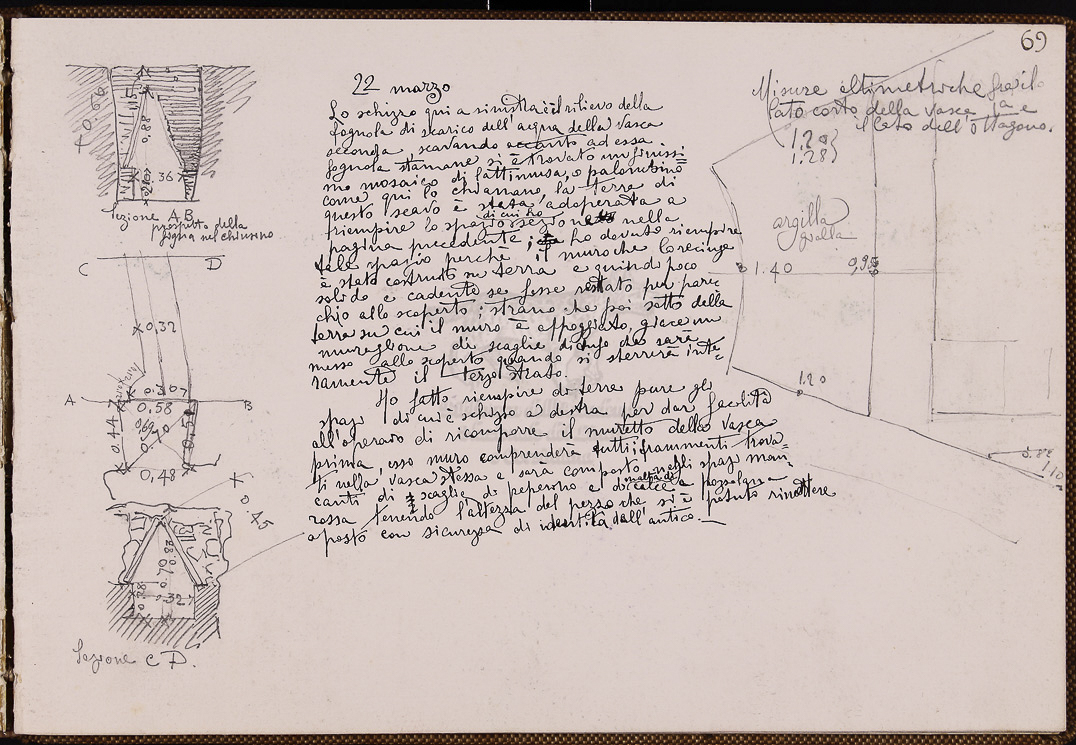 69
22 marzo
Lo schizzo qui a sinistra è il rilievo della
fognola di scarico dell'acqua della vasca
seconda scavando accanto ad essa
fognola stamane si è trovato un finissi=
mo mosaico di lattimusa, o palombino
come qui lo chiamano, la terra di
questo scavo è stata adoperata a
riempire lo spazio di cui ho nella
pagina precedente; ho dovuto riempire
tale spazio perchè il muro che lo recinge
è stato costruito su terra e quindi poco
solido e cadente se fosse restato per parec
chio allo scoperto; strano che poi sotto della
terra su cui il muro è appoggiato, giace un
muraglione di scaglie di tufo che sarà
messo allo scoperto quando si sterrerà inte=
ramente il terzo strato.
Ho fatto riempire di terra pure gli
spazi di cui è schizzo a destra per dar facoltà
all'operaio di ricomporre il muretto della vasca
prima, esso muro comprenderà tutti i frammenti trova=
ti nella vasca stessa e sarà composto negli spazi man=
canti di scaglie di peperino e di malta di calce e pozzolana
rossa tenendo l'altezza del pezzo che si è potuto rimettere
a posto con sicurezza di identità dall'antico.
Misure altimetriche fra il
lato corto della vasca e
il lato dell'ottagono.
1.20
1.28
argilla
gialla
1.40
0,95
1.20
1.10
0.66
0.88
0.36
Sezione A B
prospetto della
fogna nel chiusino
C D
0,32
A B
0.07
0.58
0.44
0,48
0.45
0.70
0.32
Sezione C D.